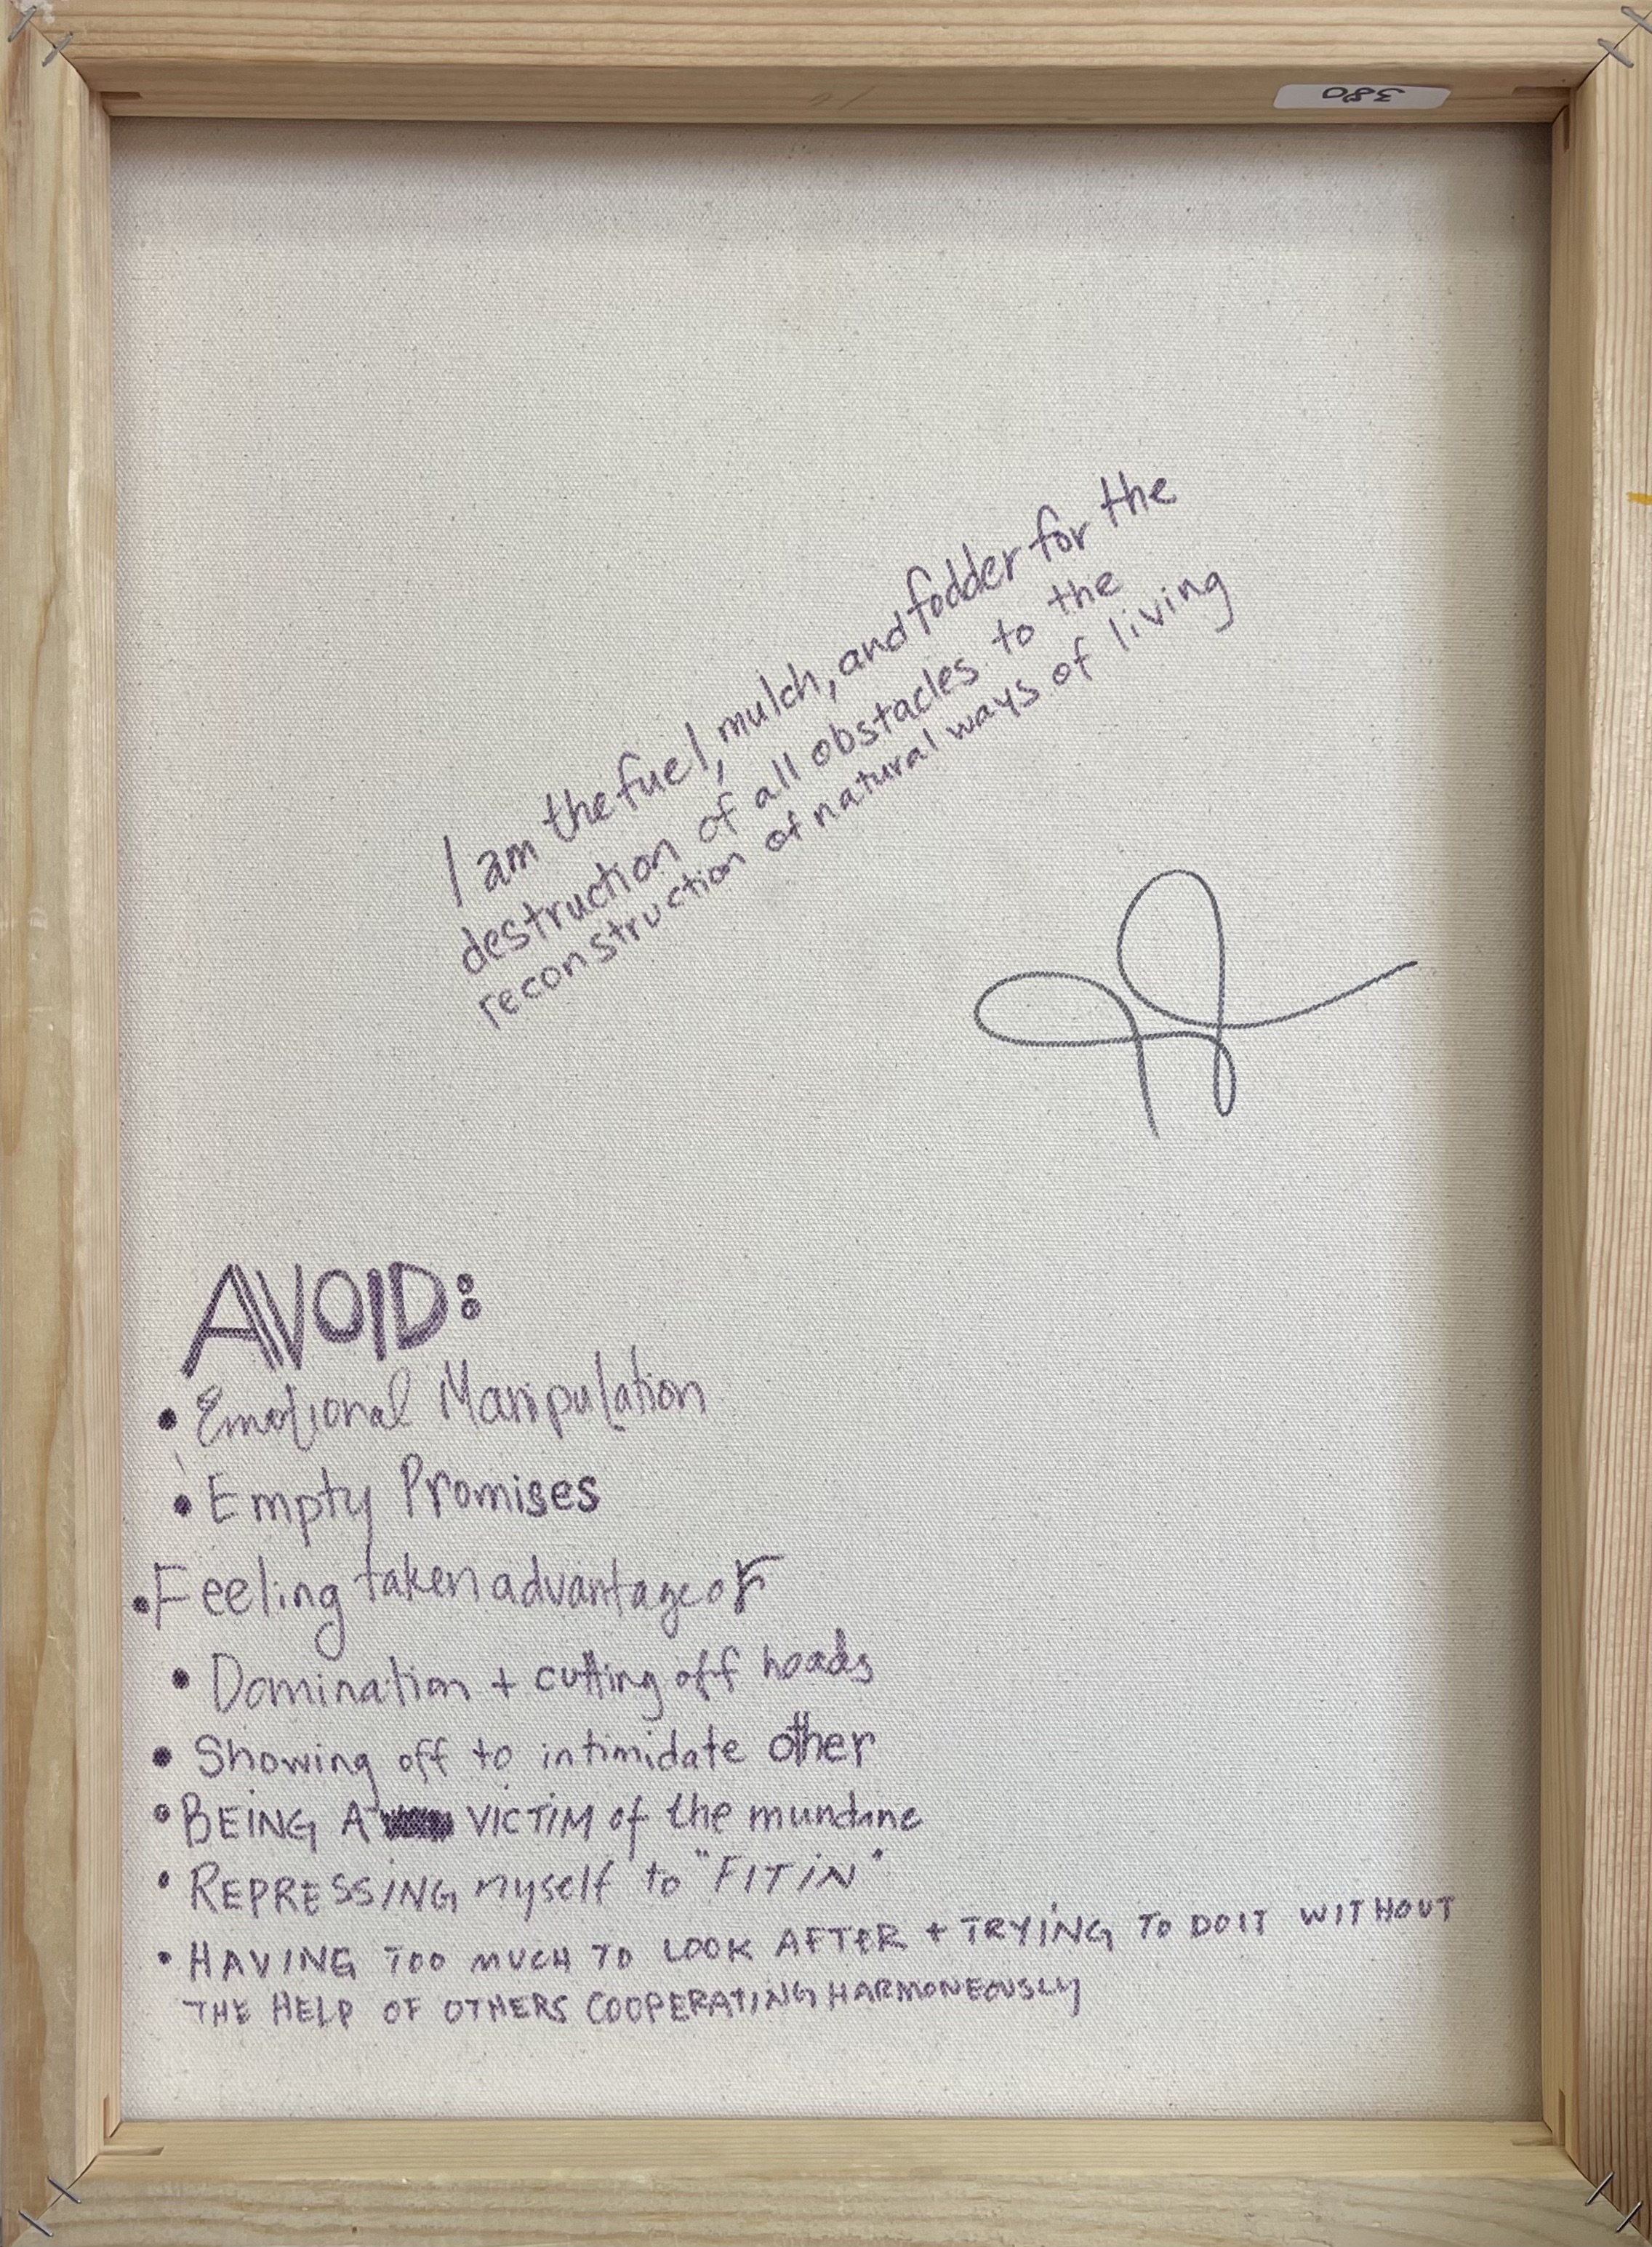 380
I am the fuel, mulch, and fodder for the
destruction of all obstacles to the
reconstruction of natural ways of living
AVOID:
• Emotional Manipulation
• Empty Promises
• Feeling taken advantage of
• Domination + cutting off heads
• Showing off to intimidate other
• BEING A VICTIM of the mundane
• REPRESSING myself to "FIT IN"
• HAVING TOO MUCH TO LOOK AFTER + TRYING TO DO IT WITHOUT
THE HELP OF OTHERS COOPERATING HARMONEOUSLY